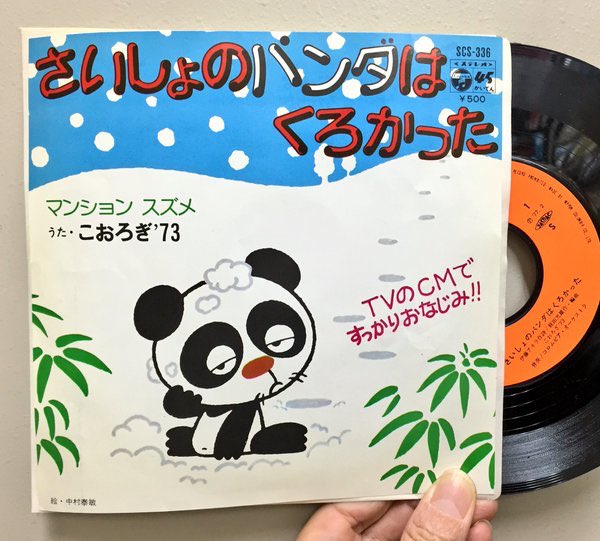 SCS-336
<ステレオ>
45
かいてん
¥500
さいしょのパンダは
くろかった
マンション スズメ
うた・こおろぎ'73
TVのCMで
すっかりおなじみ!!
絵・中村泰敏
1
S
さいしょのパンダはくろかった
こおろぎ'73